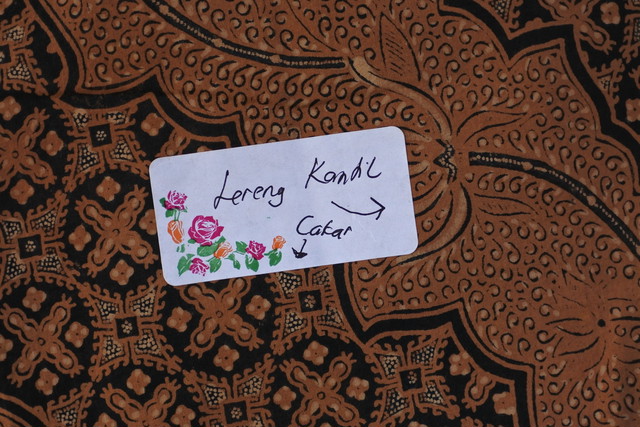 Lereng Kandil
Cakar